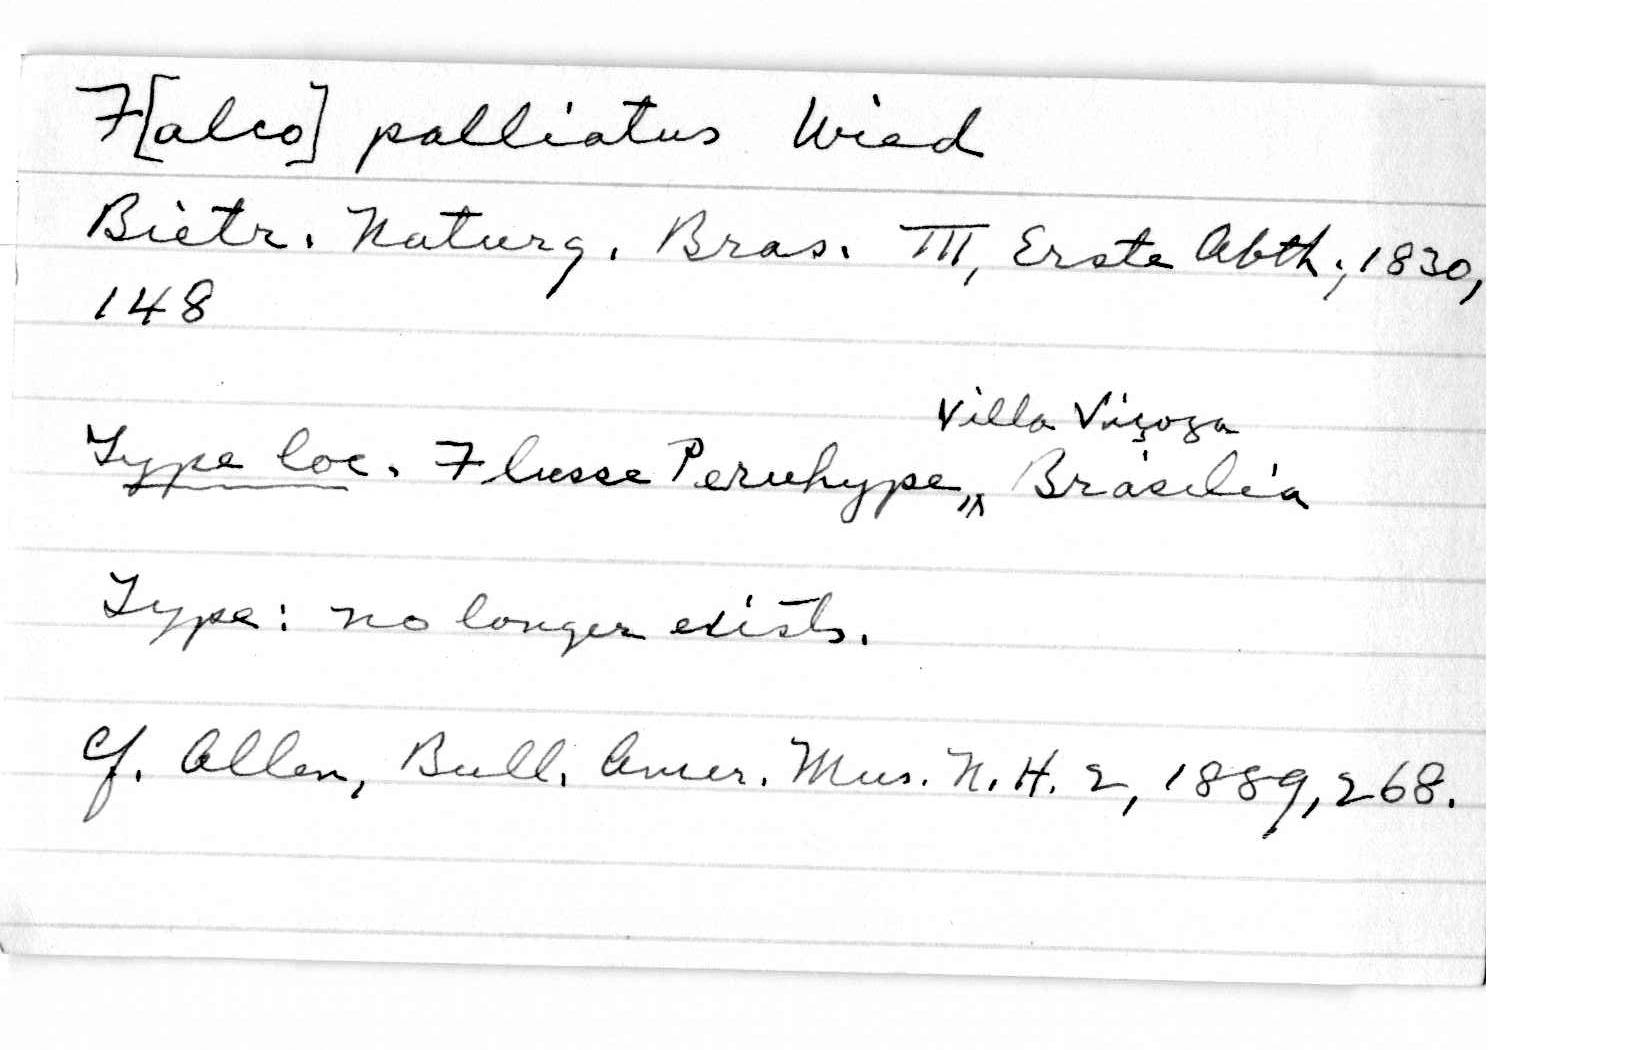 F[alco] palliatus Wied
Bietr. Naturg. Bras. III, Erste Abth., 1830,
148
Villa Viçoza
Type loc. Flusse Peruhype,, Brasilia
Type: no longer exists.
cf. Allen, Bull. Amer. Mus. N. H. 2, 1889, 268.